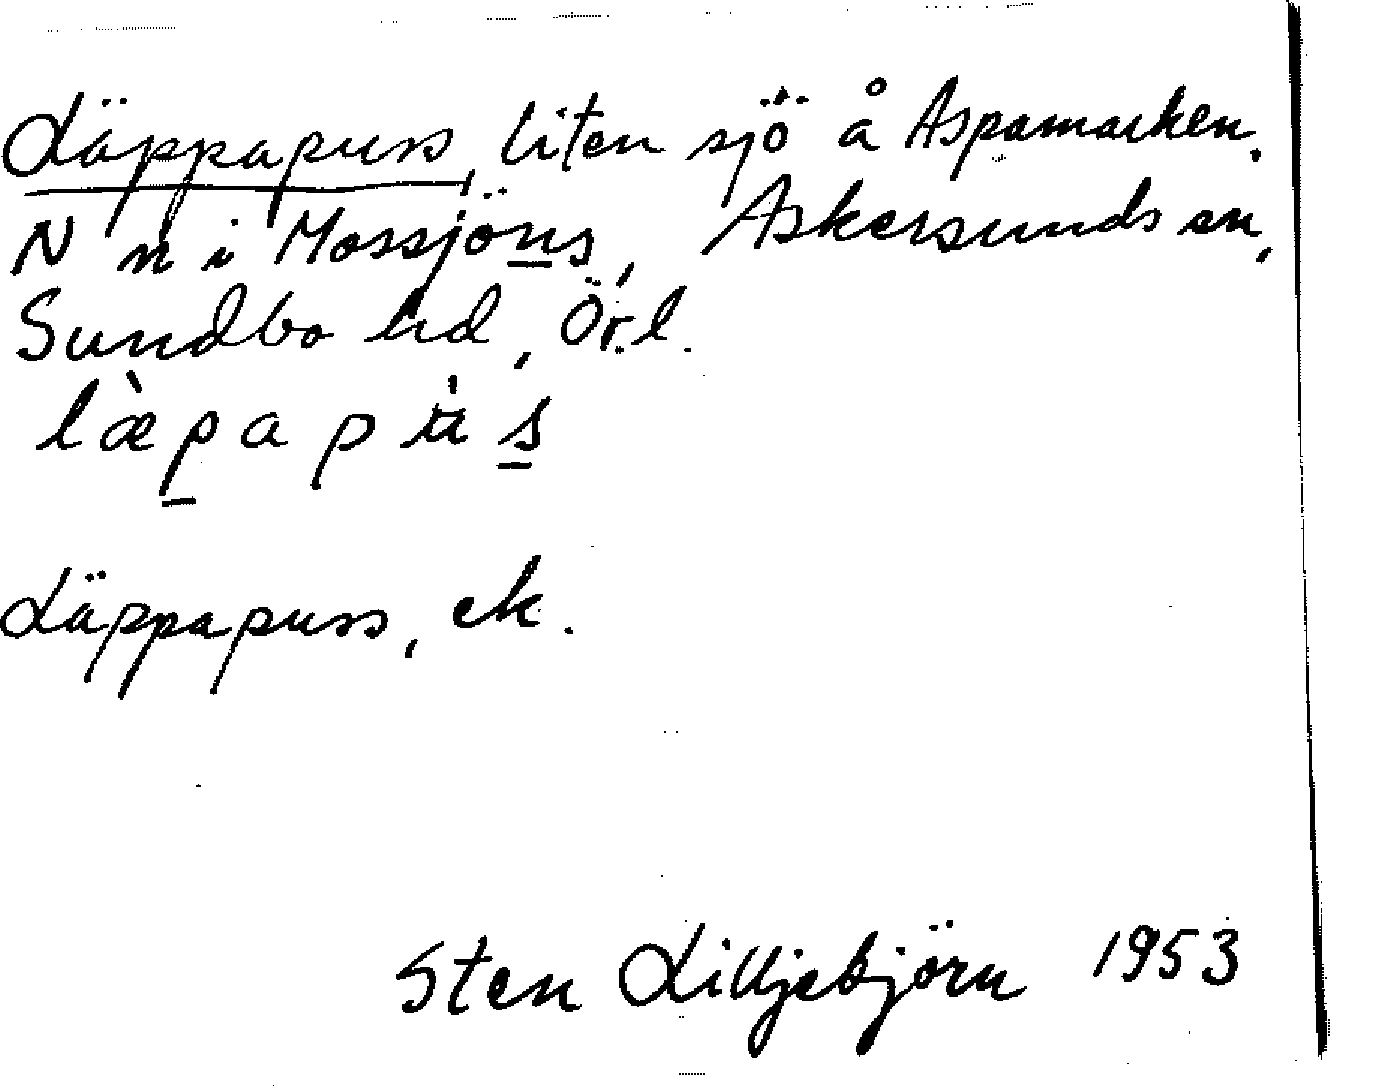 Läppapuss, liten sjö å Aspamarken.
N n i Mossjöns, Askersunds sn,
Sundbo hd, Ör.l.
læ̀papu̇s
Läppapuss, ek.
Sten Lilljebjörn 1953